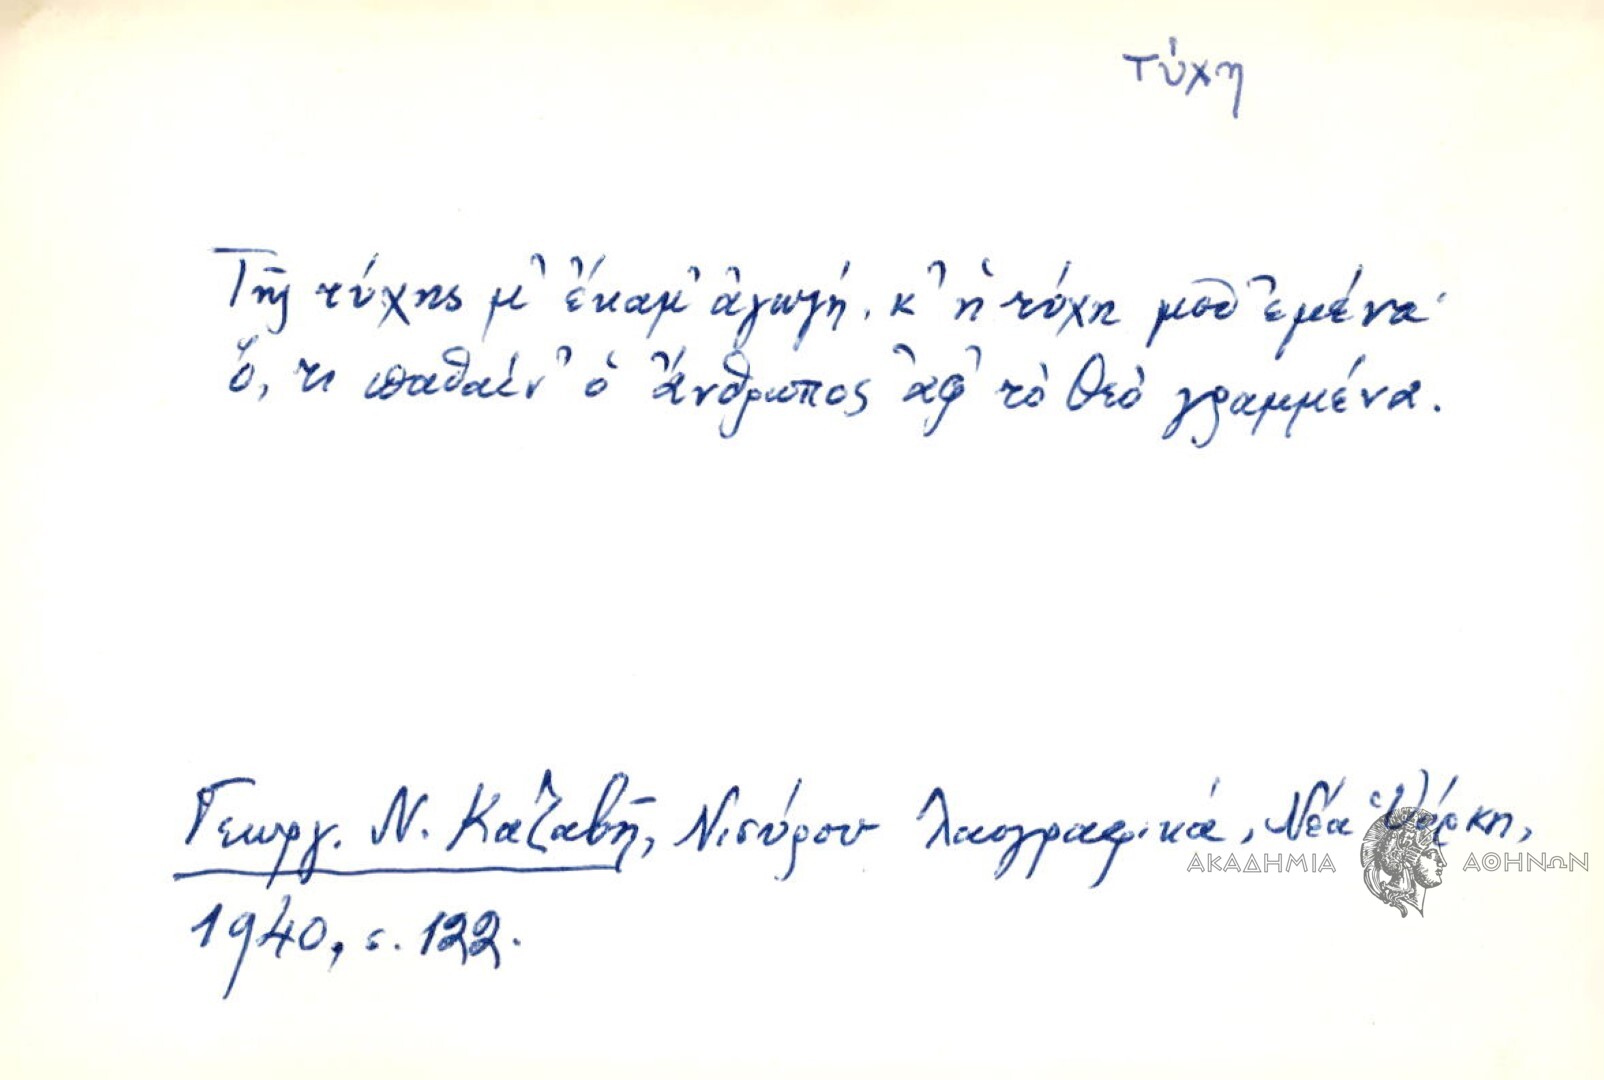 τύχη
Τῆς τύχης μ' ἔκαμ' ἀγωγή, κ' ἡ τύχη μοῦ ἐμένα·
ὅ,τι παθαίν' ὁ ἄνθρωπος ἀφ' τὸ Θεὸ γραμμένα.
Γεωργ. Ν. Καζαβῆ, Νισύρου λαογραφικά, Νέα Ὑόρκη,
ΑΚΑΔΗΜΙΑ ΑΘΗΝΩΝ
1940, σ. 122.